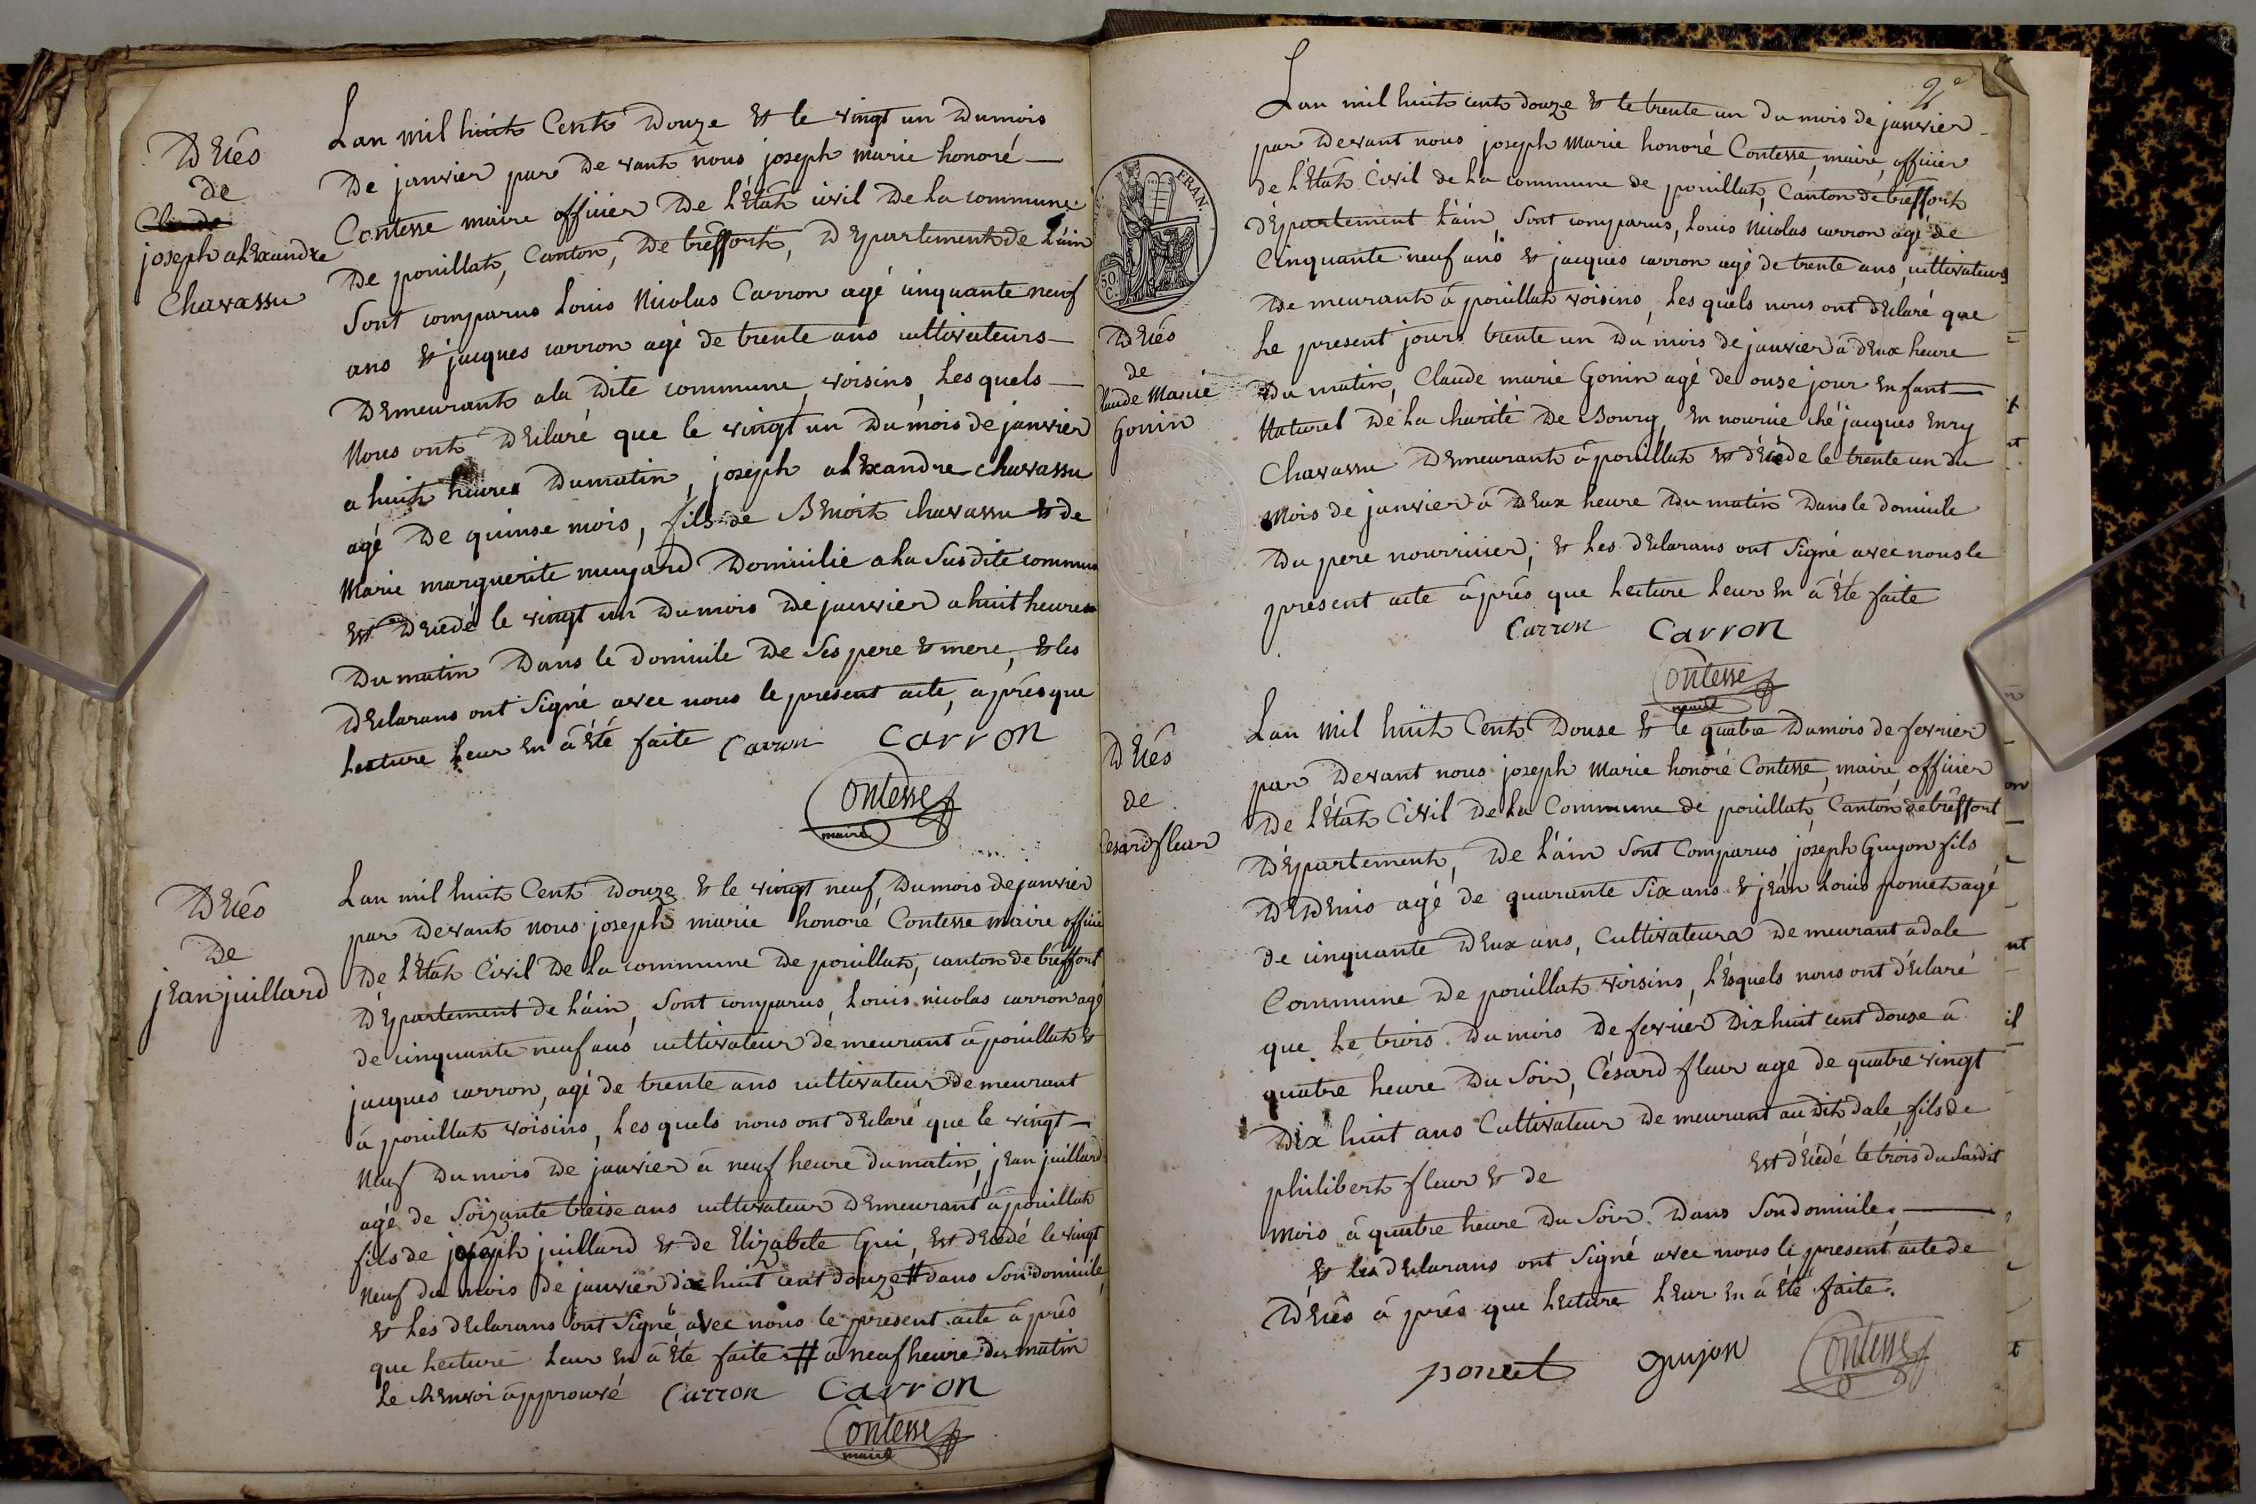 Décés
de
Claude
joseph alexandre
Chavassu
Lan mil huit Cent Douze et le vingt un Dumois
De janvier par De vant nous joseph marie honoré
Contesse maire officier De L'état civil De La commune
De pouillat, Canton, De treffort, Département de L'ain
Sont comparus Louis Nicolas Carron agé cinquante neuf
ans et jacques carron agé de trente ans cultivateurs
Demeurant a la Dite commune, voisins, Les quels
Nous ont Déclaré que le vingt un Du mois de janvier
a huit heures Dumatin, joseph alexandre chavassu
agé De quinse mois, fils de Benoit chavassu et de
Marie marguerite Domicilié a La Sus dite commune
Est Décédé le vingt un Dumois De janvier a huit heures
Du matin Dans le Domicile De Ses pere et mere, et les
Déclarans ont Signé avec nous le présent acte, après que
Lecture Leur En a Eté faite Carron Carron
Contesse
maire
Décés
De
jean juillard
Lan mil huit Cent Douze et le vingt neuf Dumois de janvier
par Devant nous joseph marie honoré Contesse maire officier
De L'état Civil De La commune De pouillat, canton de treffort
Département de L'ain, Sont comparus, Louis nicolas carron agé
de cinquante neuf ans cultivateur demeurant à pouillat et
jacques carron, agé de trente ans cultivateur demeurant
à pouillat voisins, Les quels nous ont déclaré que le vingt
Neuf Dumois De janvier à neuf heure dumatin, jean juillard
agé de Soizante treise ans cultivateur Demeurant à pouillat
fils de joseph juillard et de Elizabete Gui, est décédé le vingt
Neuf du mois de janvier dix huit cent douze # dans Son domicile,
et Les déclarans ont Signé avec nous le present acte à prés
que Lecture Leur En a Eté faite # à neuf heure du matin
Le Renvoi approuvé Carron Carron
Contesse
maire
2e
Lan mil huit cent douze et le trente un du mois de janvier
par devant nous joseph Marie honoré Contesse, maire, officier
de L'état Civil de La commune de pouillat, Canton de treffort
département L'ain, Sont comparus, Louis Nicolas carron agé de
Cinquante neuf ans et jacques carron agé de trente ans, cultivateurs
De meurant à pouillat voisins, Les quels nous ont déclaré que
Le present jour trente un Du mois de janvier à deux heure
Du matin, Claude marie Gonin agé de onse jour Enfant
Naturel De La charité De Bourg, En nourice ché jacques Enry
Chavassu Demeurant à pouillat Est décédé le trente un du
Mois de janvier à Deux heure Du matin Dans le domicile
Du pere nourricier, et Les déclarans ont Signé avec nous le
present acte à prés que Lecture Leur En a Eté faite
Carron Carron
Contesse
maire
FRAN.
50
C.
Décés
de
laude Marie
Gonin
Décés
de
Cesard fleur
Lan Mil huit Cent Douse et le quatre Dumois de fevrier
par Devant nous joseph Marie honoré Contesse, maire, officier
De L'état Civil De La Commune de pouillat, Canton de treffort
Département, De L'ain Sont Comparus, joseph Guyon fils
agé de quarante Six ans et jean Louis ponet agé
de cinquante Deux ans, Cultivateurs De meurant a dale
Commune De pouillat voisins, Lesquels nous ont déclaré
que Le trois Dumois De fevrier Dix huit cent douse à
quatre heure Du Soir, Césard fleur agé de quatre vingt
Dix huit ans Cultivateur De meurant au dit dale, fils de
philibert fleur et de est décédé le trois du Susdit
mois à quatre heure Du Soir Dans Son domicile,
et Les déclarans ont Signé avec nous le present acte de
Décés à prés que Lecture Leur En a Eté faite.
ponet Guyon Contesse